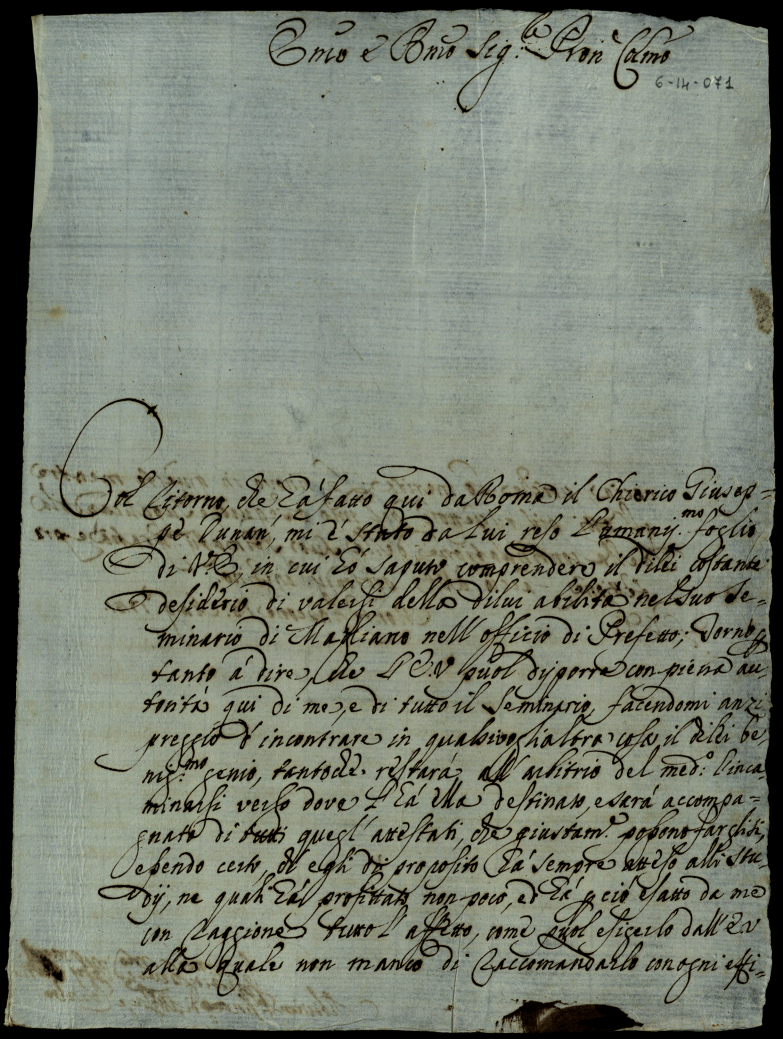 Emo e Rmo Sig.re Pron Colmo
6-14-071
Col ritorno, che hà fatto qui da Roma il Chierico Giusep=
pe Dunan, mi è stato da lui reso l'umaniss.mo foglio
di V.E, in cui hò saputo comprendere il dilei costante
desiderio di valersi della dilui abilità nel suo Se=
minario di Magliano nell'officio di Prefetto; Torno
tanto à dire, che l'E.V puol disporre con piena au=
torità qui di me, e di tutto il Seminario, facendomi anzi
preggio d'incontrare in qualsivoglialtra cosa il dilei be=
nig.mo genio, tantoche restarà all'arbitrio del med.o l'inca=
minarsi verso dove l'hà ella destinato, e sarà accompa=
gnato di tutti quegl'attestati, che giustam.e possono farglisi,
essendo certo, ch'egli di proposito hà sempre atteso alli stu=
dij, ne quali hà profittato non poco, ed hà p ciò esatto da me
con raggione tutto l'affetto, come puol esigerlo dall'EV
alla quale non manco di raccomandarlo con ogni effi=